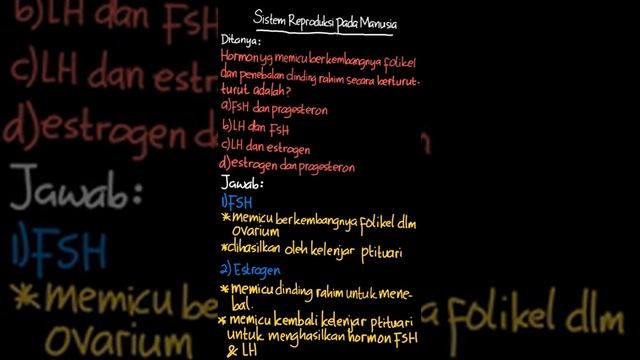 Sistem Reproduksi pada Manusia
Ditanya:
Hormon yg memicu berkembangnya folikel
dan penebalan dinding rahim secara berturut-
turut adalah?
a) FSH dan progesteron
b) LH dan FSH
c) LH dan estrogen
d) estrogen dan progesteron
Jawab:
1) FSH
* memicu berkembangnya folikel dlm
ovarium
* dihasilkan oleh kelenjar ptituari
2) Estrogen
* memicu dinding rahim untuk mene-
bal.
* memicu kembali kelenjar ptituari
untuk menghasilkan hormon FSH
& LH
b) LH dan FSH
c) LH dan estr
d) estrogen da
Jawab:
1) FSH
* memicu ber
ovarium
a folikel dlm